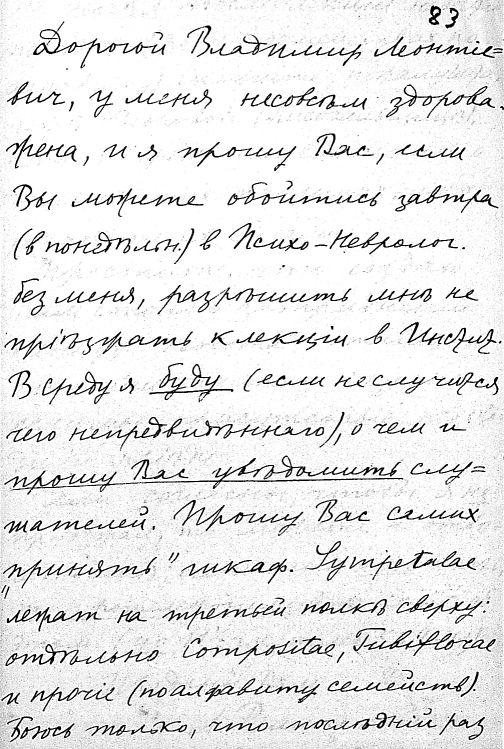 83
Дорогой Владимир Леонтіе=
вич, у меня несовсѣм здорова
жена, и я прошу Вас, если
Вы можете обойтись завтра
(в понедѣльн.) в Психо-Невролог.
без меня, разрѣшить мнѣ не
пріѣзжать к лекціи в Инстит.
В среду я буду (если не случится
чего непредвидѣннаго), о чем и
прошу Вас увѣдомить слу=
шателей. Прошу Вас самих
"принять" шкаф. Sympetalae
лежат на третьей полкѣ сверху:
отдѣльно Compositae, Tubiflorae
и прочіе (по алфавиту семейств).
Боюсь только, что послѣдній раз